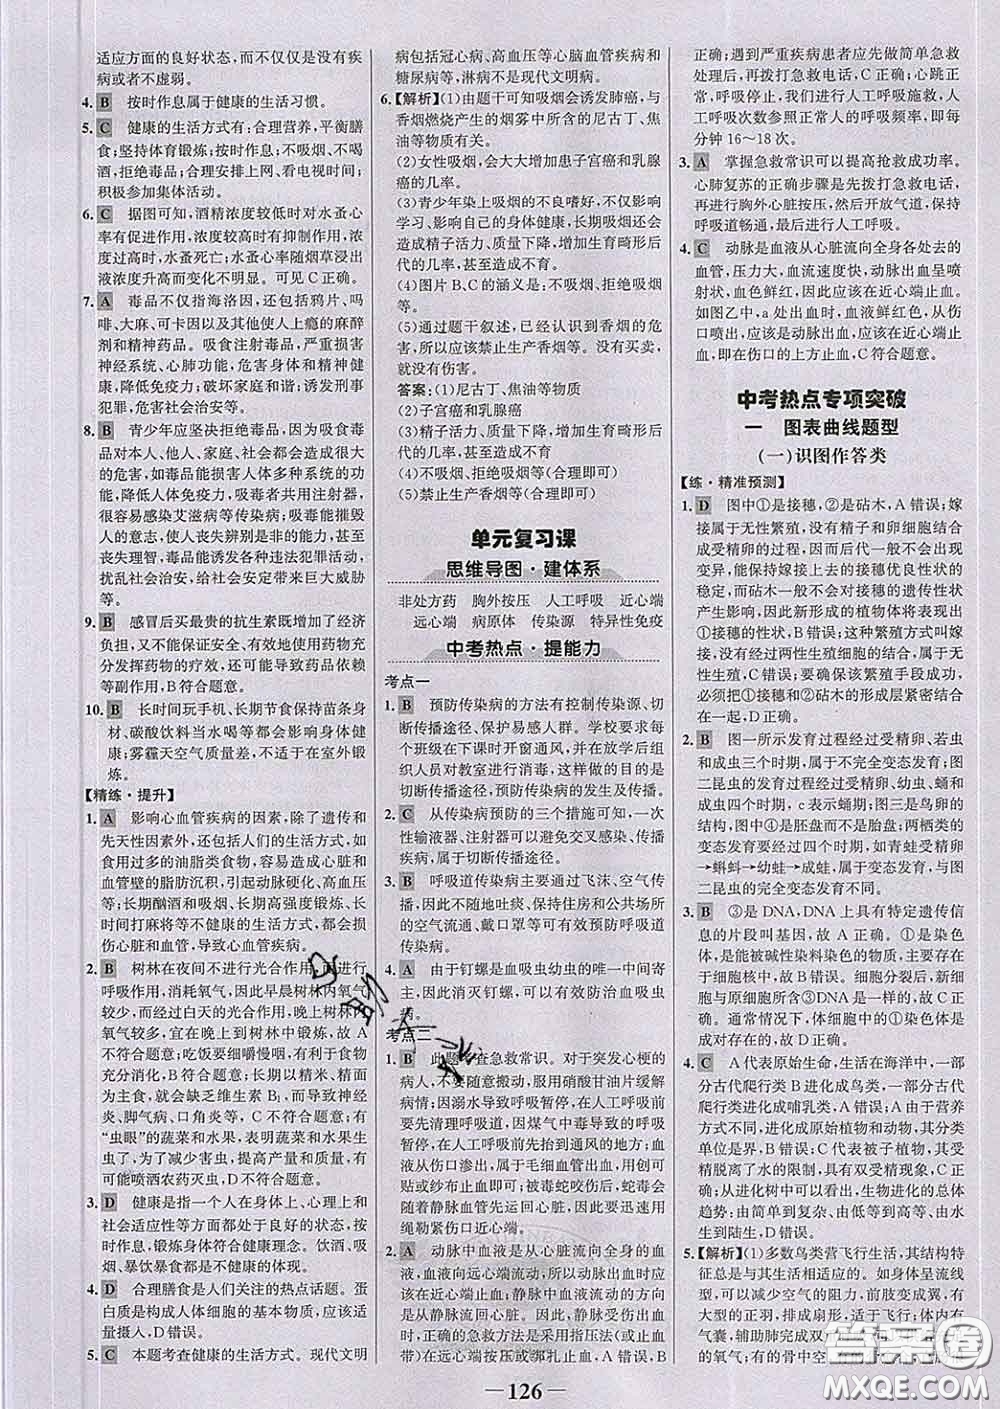 适应方面的良好状态,而不仅仅是没有疾
病或者不虚弱。
4. B 按时作息属于健康的生活习惯。
5. C 健康的生活方式有:合理营养,平衡膳
食;坚持体育锻炼;按时作息;不吸烟、不喝
酒,拒绝毒品;合理安排上网、看电视时间;
积极参加集体活动。
6. C 据图可知,酒精浓度较低时对水蚤心
率有促进作用,浓度较高时有抑制作用,浓
度过高时,水蚤死亡;水蚤心率随烟草浸出
液浓度升高而变化不明显。可见C正确。
7. A 毒品不仅指海洛因,还包括鸦片、吗
啡、大麻、可卡因以及其他使人上瘾的麻醉
剂和精神药品。吸食注射毒品,严重损害
神经系统、心肺功能,危害身体和精神健
康,降低免疫力;破坏家庭和谐;诱发刑事
犯罪,危害社会治安等。
8. B 青少年应坚决拒绝毒品,因为吸食毒
品对本人、他人、家庭、社会都会造成很大
的危害,如毒品能损害人体多种系统的功
能,降低免疫力;吸毒者共用注射器,
很容易感染艾滋病等传染病;吸毒能摧毁
人的意志,使人丧失辨别是非的能力,甚至
丧失理智,进而诱发各种违法犯罪活动,
扰乱社会治安,给社会安定带来巨大威胁
等。
9. B 感冒后买最贵的抗生素既增加了经济
负担,又不能保证安全、有效地使用药物充
分发挥药物的疗效,还可能导致药品依赖
等副作用,B符合题意。
10. B 长时间玩手机、长期节食保持苗条身
材、碳酸饮料当水喝等都会影响身体健
康;雾霾天空气质量差,不适于在室外锻
炼。
【精练·提升】
1. A 影响心血管疾病的因素,除了遗传和
先天性因素外,还包括人们的生活方式,如
食用过多的油脂类食物,容易造成心脏和
血管壁的脂肪沉积,引起动脉硬化、高血压
等;长期酗酒和吸烟、长期高强度锻炼、长
时间打麻将等不健康的生活方式,都会损
伤心脏和血管,导致心血管疾病。
2. B 树林在夜间不进行光合作用,而进行
呼吸作用,消耗氧气,因此早晨树林内氧气
较少,而经过白天的光合作用,晚上树林内
氧气较多,宜在晚上到树林中散步,故A
不符合题意;吃饭要细嚼慢咽,有利于食物
充分消化,B符合题意;长期以精米、精白
面为主食,就会缺乏维生素B₁,而导致神经
炎、脚气病、口角炎等,C不符合题意;有
“虫眼”的蔬菜和水果,表明蔬菜和水果生
虫了,为了减少害虫,提高产量和质量,有
可能喷洒农药灭虫,D不符合题意。
3. D 健康是指一个人在身体上、心理上和
社会适应性等方面都处于良好的状态,按
时作息,锻炼身体符合健康理念。饮酒、吸
烟、暴饮暴食都是不健康的体现。
4. D 合理膳食是人们关注的热点话题。蛋
白质是构成人体细胞的基本物质,应该适
量摄入,D错误。
5. C 本题考查健康的生活方式。现代文明
病包括冠心病、高血压等心脑血管疾病和
糖尿病等,淋病不是现代文明病。
6.【解析】(1)由题干可知吸烟会诱发肺癌,与
香烟燃烧产生的烟雾中所含的尼古丁、焦
油等物质有关。
(2)女性吸烟,会大大增加患子宫癌和乳腺
癌的几率。
(3)青少年染上吸烟的不良嗜好,不仅影响
学习、影响自己的身体健康,长期吸烟还会
造成精子活力、质量下降,增加生育畸形后
代的几率,甚至造成不育。
(4)图片B、C的涵义是:不吸烟、拒绝吸烟
等。
(5)通过题干叙述,已经认识到香烟的危
害,所以应该禁止生产香烟等。
答案:(1)尼古丁、焦油等物质
(2)子宫癌和乳腺癌
(3)精子活力、质量下降,增加生育畸形后
代的几率,甚至造成不育
(4)不吸烟、拒绝吸烟等(符合题意即可)
(5)禁止生产香烟等(符合题意即可)
单元复习课
思维导图·建体系
非处方药 胸外按压 人工呼吸 近心端
远心端 病原体 传染源 特异性免疫
中考热点·提能力
考点一
1. B 预防传染病的方法有控制传染源、切
断传播途径、保护易感人群。学校要求每
个班级在下课时开窗通风,并在放学后组
织人员对教室进行消毒,这些措施的目的是
切断传播途径,预防传染病的发生及传播。
2. C 从传染病预防的三个措施可知,一次
性输液器、注射器可以避免交叉感染、传播
疾病,属于切断传播途径。
3. B 呼吸道传染病主要通过飞沫、空气传
播,因此不随地吐痰、保持住房和公共场所
的空气流通、戴口罩等可有效预防呼吸道
传染病。
4. A 由于钉螺是血吸虫幼虫的唯一中间寄
主,因此消灭钉螺,可以有效防治血吸虫
病。
考点二
1. B 此题考查急救常识。对于突发心梗的
病人,不要随意搬动,服用硝酸甘油片缓解
病情;因溺水导致呼吸暂停,在人工呼吸前
要先清理呼吸道,因煤气中毒导致的呼吸
暂停,在人工呼吸前先抬到通风的地方;血
液从伤口渗出,属于毛细血管出血,可用创可
贴或纱布止血即可;被毒蛇咬伤后,蛇毒会
随着静脉血液流回心脏,因此要迅速用
绳勒紧伤口近心端。
2. A 动脉中血液是从心脏流向全身的血液
流动,血液从近心端流向远心端,
流动,静脉血液从静脉流向心脏的方向是
从静脉流回心脏。因此,静脉受伤出血时,
正确的急救方法是采用指压法(或止血带
等)在远心端按压或绑扎止血,A错误、B
正确;遇到严重疾病患者应先做简单急救
处理后,再拨打急救电话,C正确;心跳正常,
呼吸停止时,我们进行人工呼吸施救,人
工呼吸次数参照正常人的呼吸频率,即每
分钟16～18次。
3. A 掌握急救常识可以提高抢救成功率。
心肺复苏的正确步骤是先拨打急救电话,
再进行胸外心脏按压,然后开放气道,保持
呼吸道畅通,最后进行人工呼吸。
4. C 动脉是血液从心脏流向全身各处去的
血管,压力大,血流速度快,动脉出血呈喷
射状,血色鲜红,因此应该在近心端止血。
如图乙中,a处出血时,血液鲜红色,从伤
口喷出,应该是动脉出血,应在近心端止
血,即在伤口的上方止血,C符合题意。
中考热点专项突破
一 图表曲线题型
(一)识图作答类
【练·精准预测】
1. D 图中①是接穗,②是砧木,A错误;嫁
接属于无性繁殖,没有精子和卵细胞结合
成受精卵的过程,因而后代一般不会出现
变异,能保持嫁接上去的接穗优良性状的
稳定,而砧木一般不会对接穗的遗传性状
产生影响,因此新形成的植物体将表现出
①接穗的性状,B错误;这种繁殖方式叫嫁
接,没有经过两性生殖细胞的结合,属于无
性生殖,C错误;要确保该繁殖手段成功,
必须把①接穗和②砧木的形成层紧密结合
在一起,D正确。
2. B 图一所示发育过程经过受精卵、若虫
和成虫三个时期,属于不完全变态发育;图
二昆虫的发育过程经过受精卵、幼虫、蛹和
成虫四个时期,c表示蛹期;图三是鸟卵的
结构,图中④是胚盘而不是胎盘;两栖类的
发育要经过四个时期,如青蛙受精卵
→蝌蚪→幼蛙→成蛙,属于变态发育,与图
二昆虫的完全变态发育不同。
3. B ③是DNA,DNA上具有特定遗传信
息的片段叫基因,故A正确。①是染色
体,是能被碱性染料染成深色的物质,故B
错误。细胞分裂时,染色体的变化最明显,
最为重要,故C正确。
通常情况下,一条染色体上有一个DNA
分子,故D正确。
4. C A代表原始生命,生活在海洋中,一部
分古代爬行类进化成鸟类,一部分古代
爬行类进化成哺乳类,A错误;由于营养
方式不同,进化成原始植物和动物,其分类
单位是界,B错误;C代表被子植物,其受
精脱离了水的限制,具有双受精现象,C正
确;从进化树中可以看出,生物进化的总体
趋势:由简单到复杂、由低等到高等、由水
生到陆生,D错误。
5.【解析】(1)多数鸟类营飞行生活,其结构特
征总是与其生活相适应的。如身体呈流线
型,可以减少空气的阻力,前肢变成翼,有
大型的正羽,排成扇形,适于飞行;体内有
气囊,辅助肺完成双
的氧气;有的骨中空
—126—
答案圈
MXQE.COM